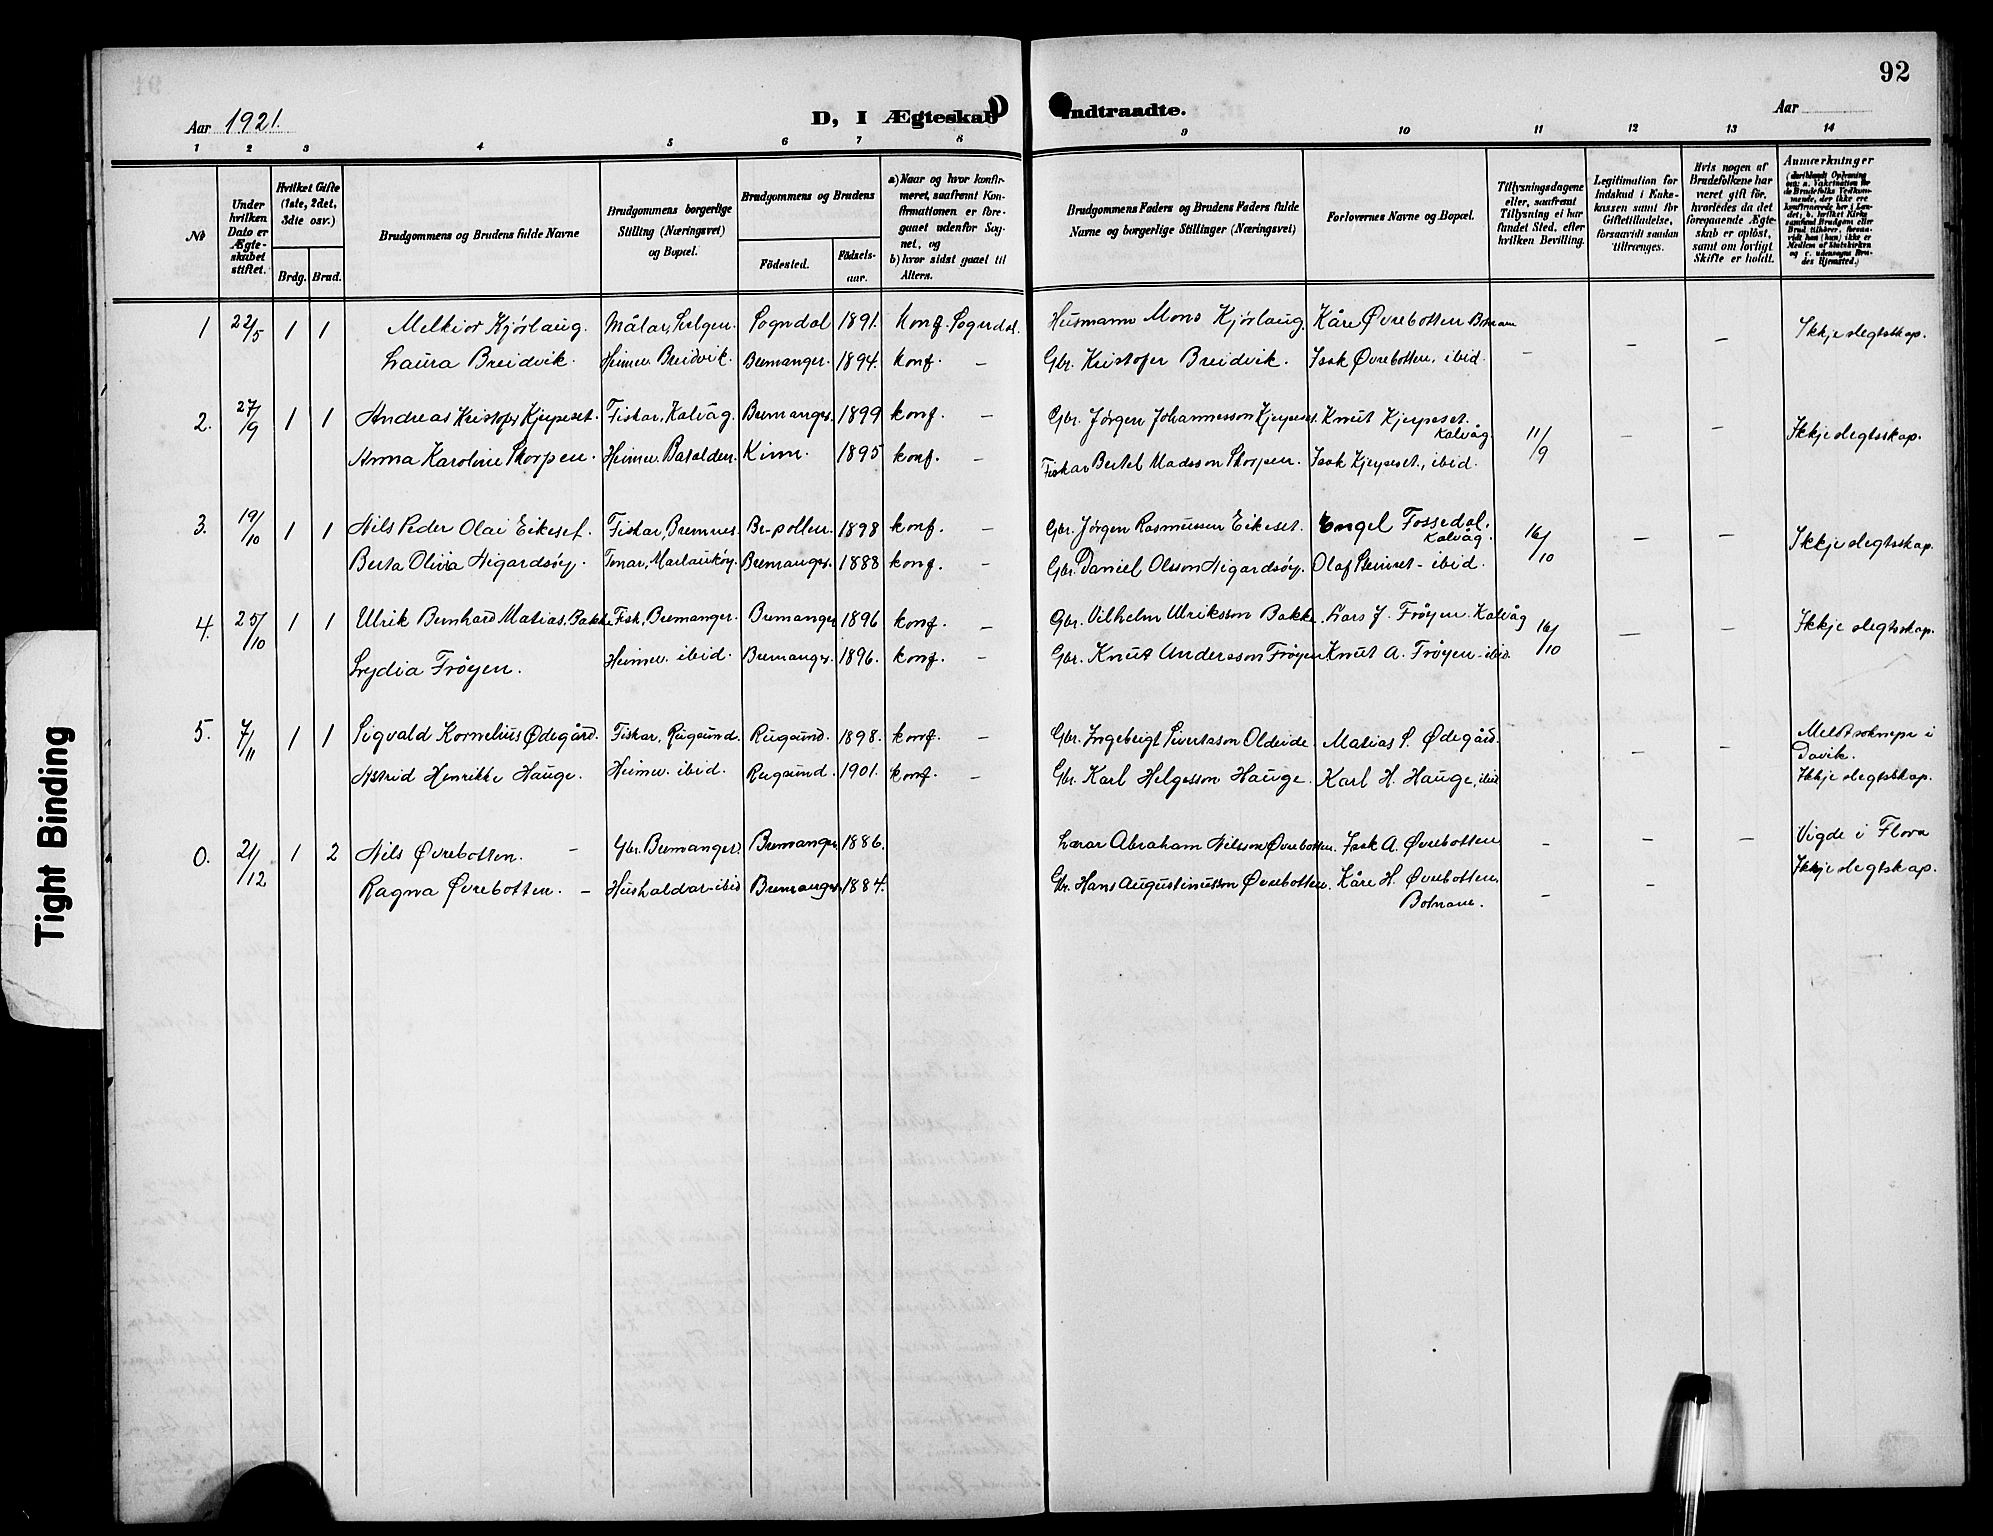 92
Aar 1921.
D, I Ægteskab Indtraadte.
Aar
1 2 3 4 5 6 7 8 9 10 11 12 13 14
No
Under hvilken Dato er Ægteskabet stiftet.
Hvilket Gifte (1ste, 2det, 3die osv.)
Brdg. Brud.
Brudgommens og Brudens fulde Navne
Brudgommens borgerlige Stilling (Næringsvei) og Bopæl.
Brudgommens og Brudens
Födested.
Födselsaar.
a) Naar og hvor konfirmeret, saafremt Konfirmationen er foregaaet udenfor Sognet, og
b) hvor sidst gaaet til Alters.
Brudgommens Faders og Brudens Faders fulde Navne og borgerlige Stillinger (Næringsvei)
Forlovernes Navne og Bopæl.
Tillysningsdagene eller, saafremt Tillysning ei har fundet Sted, efter hvilken Bevilling.
Legitimation for Indskud i Enkekassen samt for Giftetilladelse, forsaavidt saadan tiltrænges.
Hvis nogen af Brudefolkene har været gift för, hvorledes da det foregaaende Ægteskab er oplöst, samt om lovligt Skifte er holdt.
Anmærkninger
1 22/5 1 1 Melkior Kjörlaug. Målar, Sogndal 1891. Konf. Sogndal. Husmann Mons Kjörlaug. Kåre Øvrebotten Botnane Ikkje slegtsskap.
Laura Breidvik. Heimev. Breidvik. Bremanger. 1894. konf. – Gbr. Kristofer Breidvik. Isak Øvrebotten, ibid. – – –
2. 27/9 1 1 Andreas Kristofer Kjeipeset. Fiskar, Kalvåg. Bremanger. 1899 konf. – Gbr. Jörgen Johannesson Kjeipeset. Knut Kjeipeset. Kalvåg. 11/9 – – Ikkje slegtsskap.
Anna Karoline Skorpen. Heimev. Batalden. Kinn. 1895 konf. – Fiskar Bertel Madsson Skorpen. Isak Kjeipeset., ibid.
3. 19/10 1 1 Nils Peder Olai Eikeset. Fiskar, Bremnes. Br-pollen. 1898 konf. – Gbr. Jörgen Rasmussen Eikeset. Engel Fossedal. Kalvåg. 16/10 – – Ikkje slegtsskap.
Berta Olivia Nigardsöy. Bremanger. 1888 konf. – Gbr. Daniel Olsson Nigardsöy. Olaf – ibid.
4. 25/10 1 1 Ulrik Bernhard Matias. Bakke Fisk, Bremanger. Bremanger 1896 konf. – Gbr. Vilhelm Ulriksson Bakke. Lars J. Fröyen. Kalvåg 16/10 – – Ikkje slegtsskap.
Lydia Fröyen. Heimev. ibid. Bremanger. 1896. konf. – Gbr. Knut Andersson Fröyen Knut A. Fröyen – ibid.
5. 7/11 1 1 Sigvald Kornelius Ødegård. Fiskar, Rugsund. Rugsund. 1898. konf. – Gbr. Ingebrigt Sivertsson Oldeide. Matias S. Ødegård. – – i Davik.
Astrid Henrikke Hauge. Heimev. ibid. Rugsund. 1901. konf. – Gbr. Karl Helgesson Hauge. Karl H. Hauge, ibid Ikkje slegtsskap.
0. 21/12 1 2 Nils Øvrebotten. – Gbr. Bremanger. Bremanger. 1886. Lærar Abraham Nilsson Øvrebotten. Isak A. Øvrebotten – – – Vigde i Flora
Ragna Øvrebotten. – Hushaldar – ibid Bremanger. 1884. Gbr. Hans Augustinusson Øvrebotten. Kåre H. Øvrebotten. Botnane. – – Ikkje slegtskap.
Tight Binding